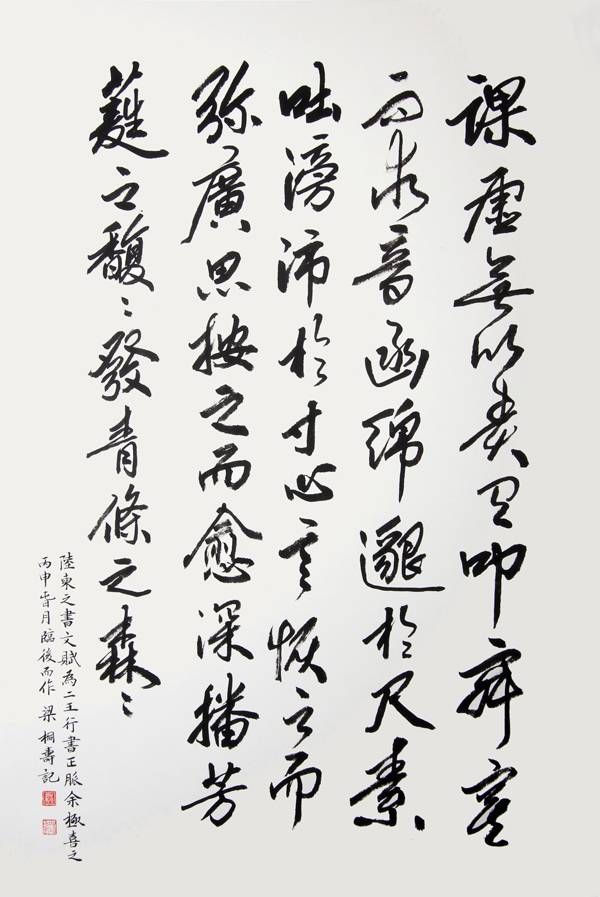 課虛無以責有叩寂寞
而求音函綿邈於尺素
吐滂沛於寸心言恢之而
弥廣思按之而愈深播芳
蕤之馥〻發青條之森〻
陸柬之書文賦為二王行書正脈余極喜之
丙申月臨後而作 梁桐壽記